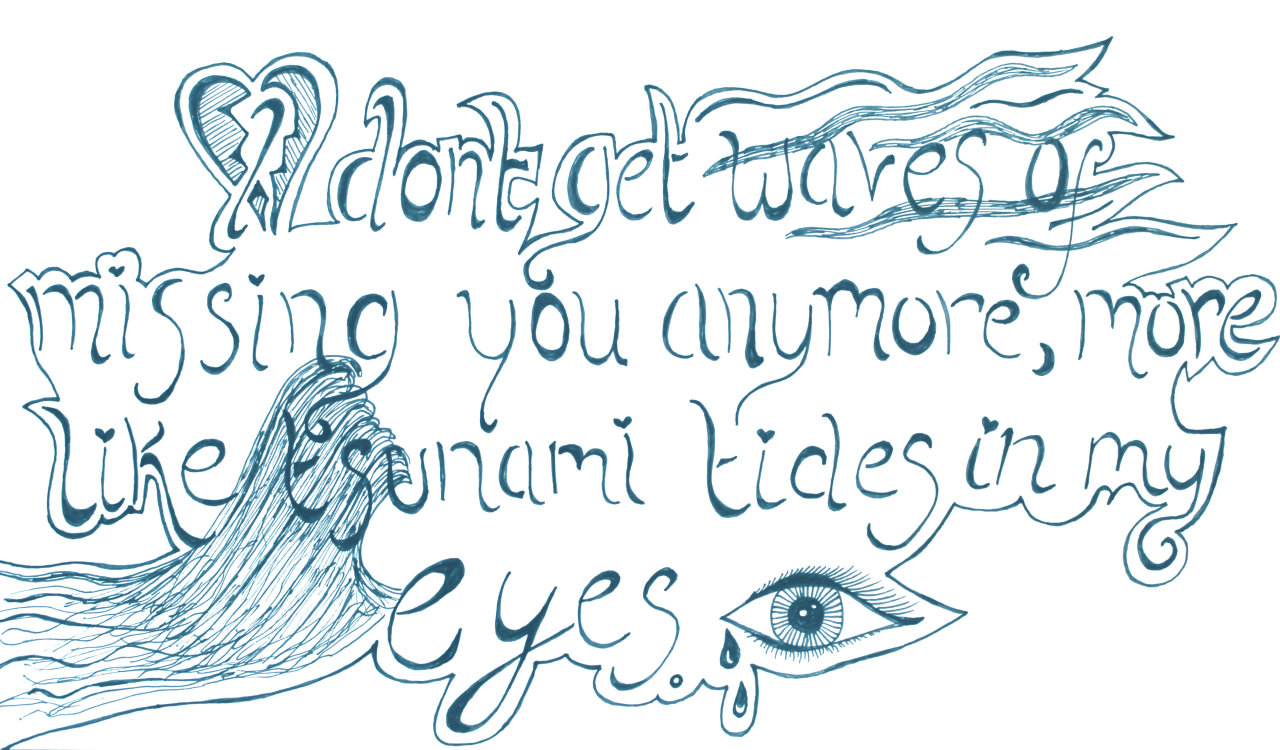 I dont get waves of
missing you anymore, more
like tsunami tides in my
eyes.